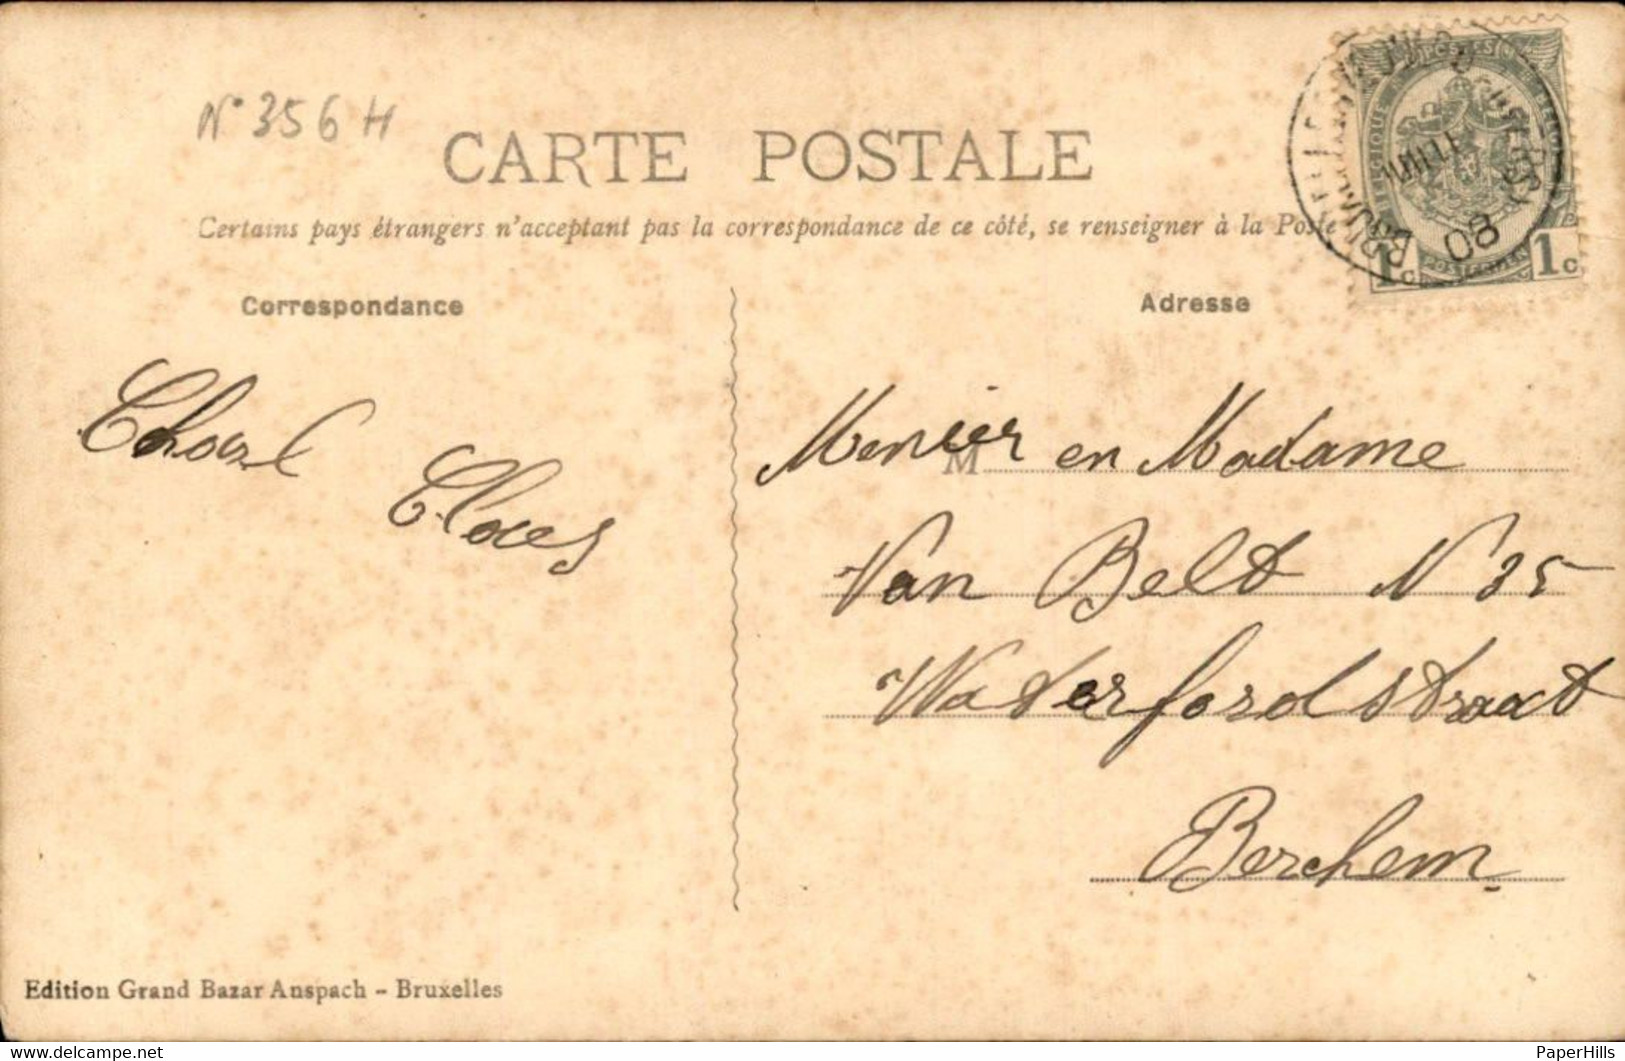 N° 356 H
CARTE POSTALE
Certains pays étrangers n'acceptant pas la correspondance de ce côté, se renseigner à la Poste
Correspondance
Adresse
M
Menier en Madame
Van Belt N 35
Waterfordstraat
Berchem
Claes
08
1c 1c
Edition Grand Bazar Anspach - Bruxelles
PaperHills